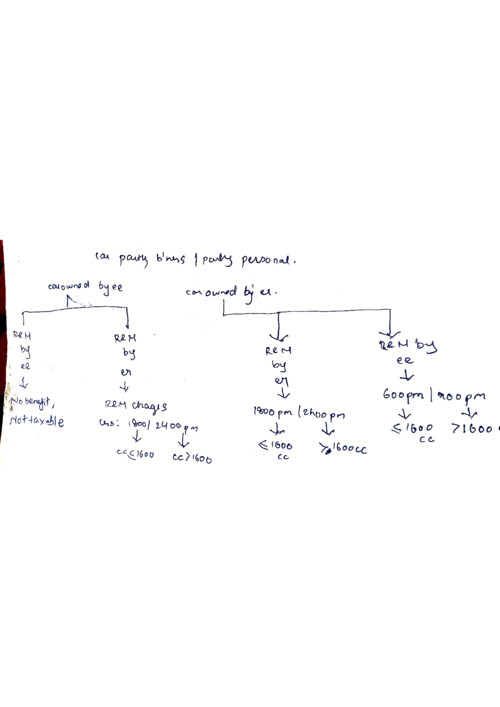 car partly b'ness / partly personal.
car owned by ee
car owned by er.
R&M
by
ee
No benefit,
Not taxable
R&M
by
er
R&M charges
less: 1800/2400 pm
cc ≤ 1600 cc > 1600
R&M
by
er
1800 pm / 2400 pm
≤ 1600
cc
> 1600 cc
R&M by
ee
600 pm / 900 pm
≤ 1600
cc
> 1600